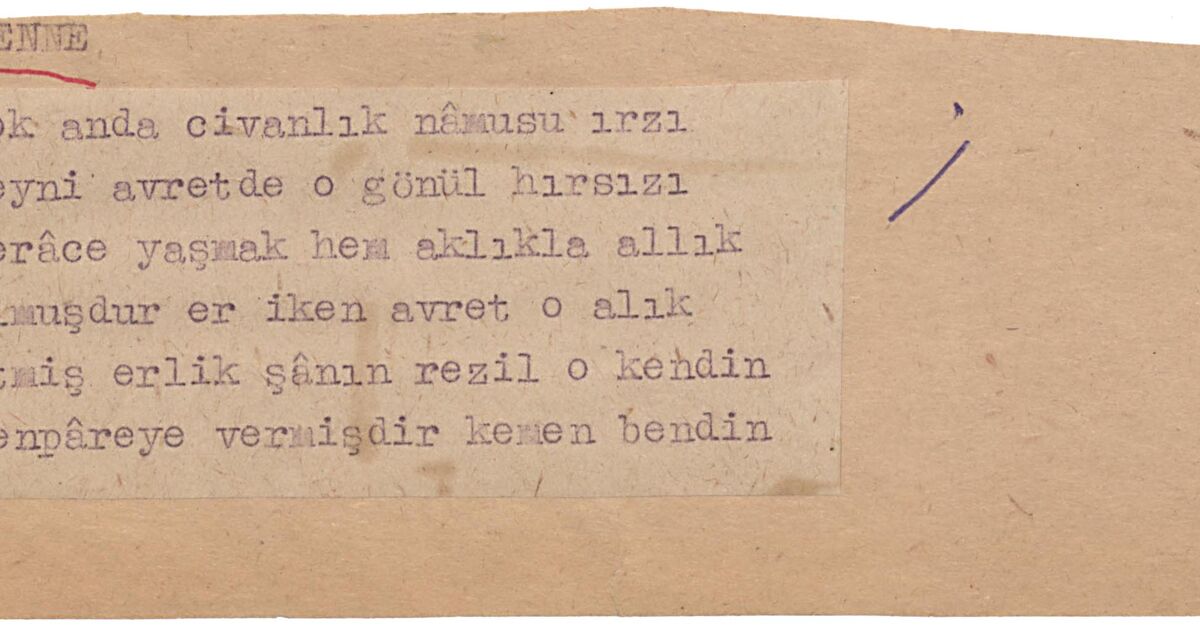 ENNE
ok anda civanlık nâmusu ırzı
eyni avretde o gönül hırsızı
erâce yaşmak hem aklıkla allık
lmuşdur er iken avret o alık
tmiş erlik şânın rezil o kendin
enpâreye vermişdir kemen bendin